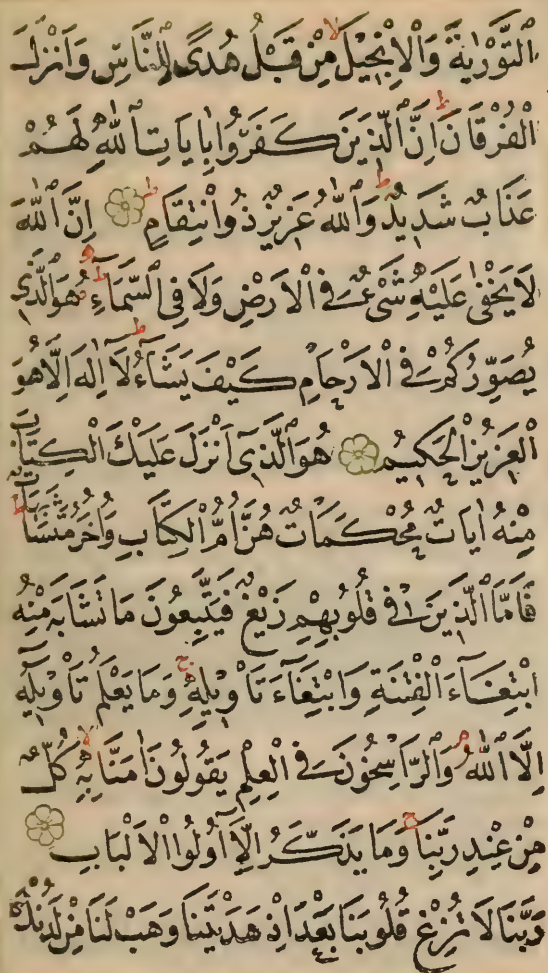 التَّوْرٰيةَ وَالْاِنْجِيْلَ مِنْ قَبْلُ هُدًى لِلنَّاسِ وَاَنْزَلَ
الْفُرْقَانَ اِنَّ الَّذِيْنَ كَفَرُوْا بِاٰيَاتِ اللّٰهِ لَهُمْ
عَذَابٌ شَدِيْدٌ وَاللّٰهُ عَزِيْزٌ ذُوانْتِقَامٍ اِنَّ اللّٰهَ
لَا يَخْفٰى عَلَيْهِ شَيْءٌ فِي الْاَرْضِ وَلَا فِي السَّمَاءِ هُوَ الَّذِيْ
يُصَوِّرُكُمْ فِي الْاَرْحَامِ كَيْفَ يَشَاءُ لَا اِلٰهَ اِلَّا هُوَ
الْعَزِيْزُ الْحَكِيْمُ هُوَ الَّذِيْ اَنْزَلَ عَلَيْكَ الْكِتَابَ
مِنْهُ اٰيَاتٌ مُحْكَمَاتٌ هُنَّ اُمُّ الْكِتَابِ وَاُخَرُ مُتَشَابِهَاتٌ
فَاَمَّا الَّذِيْنَ فِي قُلُوْبِهِمْ زَيْغٌ فَيَتَّبِعُوْنَ مَا تَشَابَهَ مِنْهُ
ابْتِغَاءَ الْفِتْنَةِ وَابْتِغَاءَ تَاْوِيْلِهِ وَمَا يَعْلَمُ تَاْوِيْلَهُ
اِلَّا اللّٰهُ وَالرَّاسِخُوْنَ فِي الْعِلْمِ يَقُوْلُوْنَ اٰمَنَّا بِهِ كُلٌّ
مِنْ عِنْدِ رَبِّنَا وَمَا يَذَّكَّرُ اِلَّا اُولُوا الْاَلْبَابِ
رَبَّنَا لَا تُزِغْ قُلُوْبَنَا بَعْدَ اِذْ هَدَيْتَنَا وَهَبْ لَنَا مِنْ لَدُنْكَ